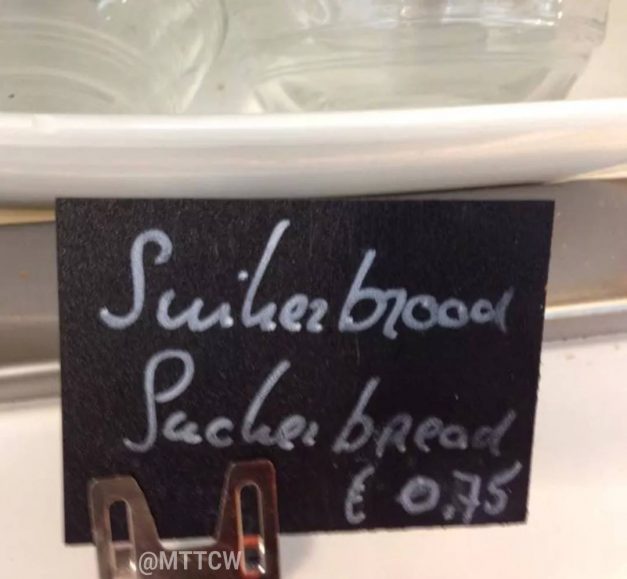 Suikerbrood
Sucker bread
€ 0.75
@MTTCW